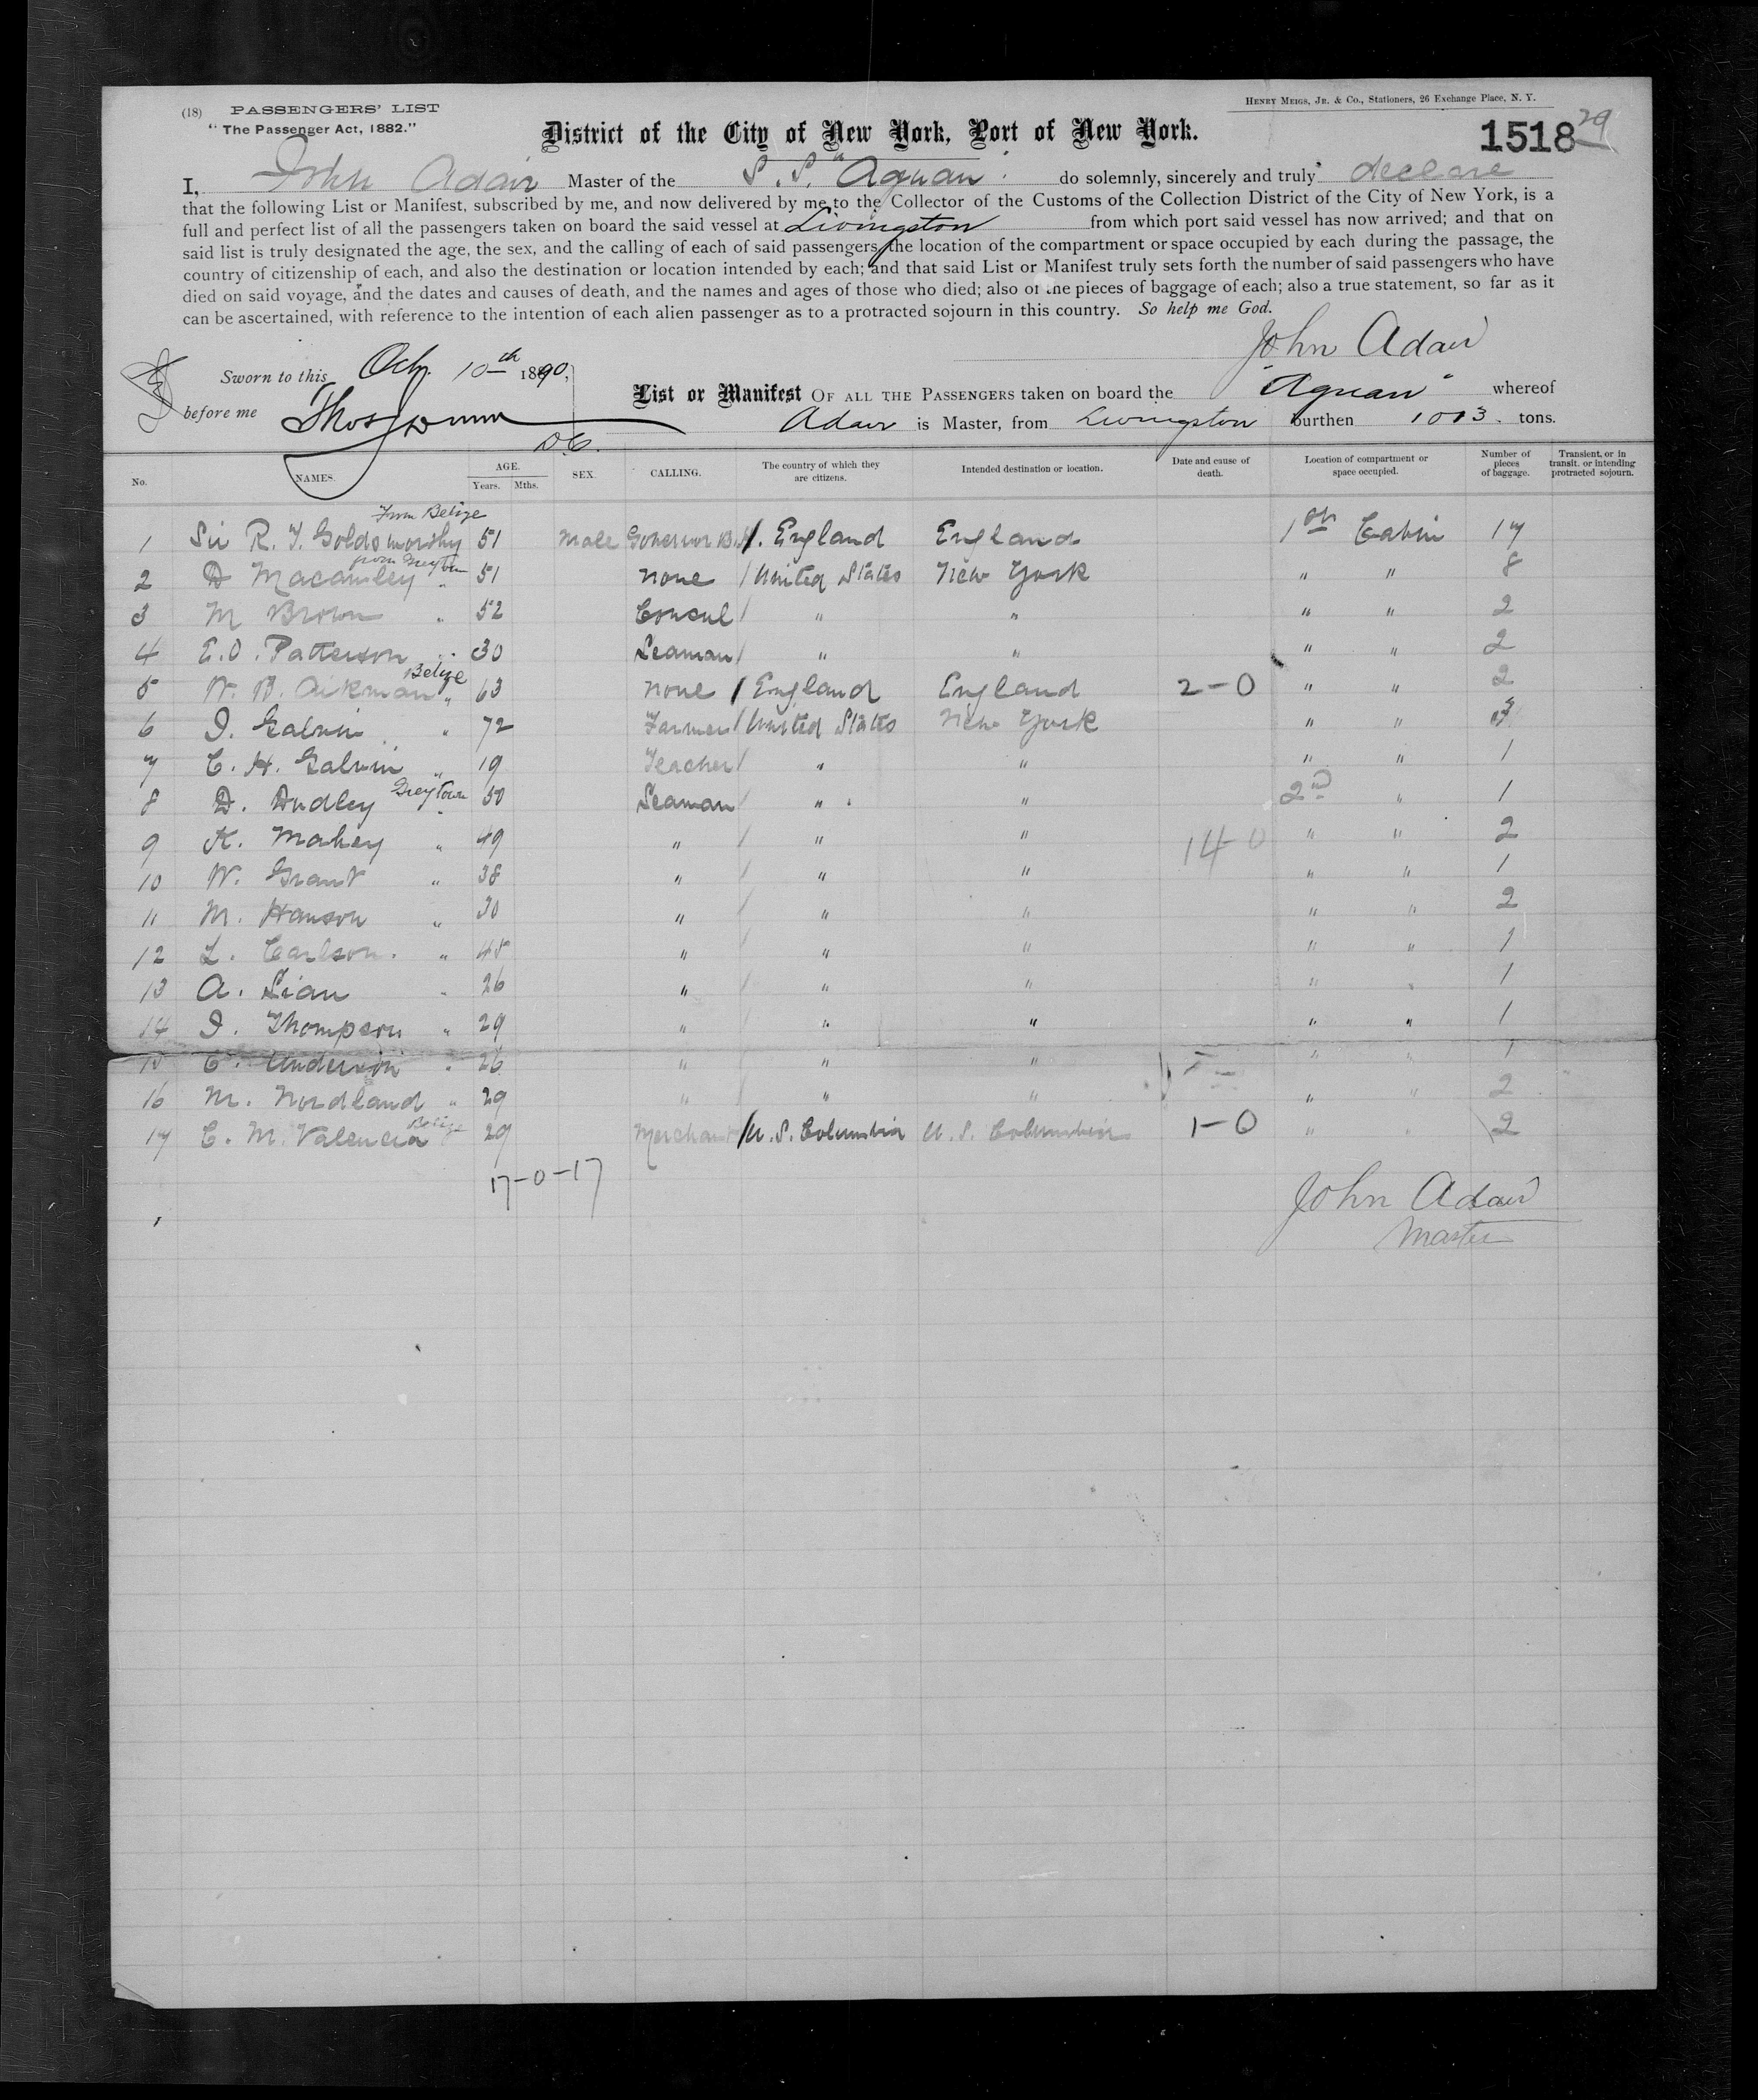 HENRY MEIGS, JR. & CO., Stationers, 26 Exchange Place, N. Y.
(18) PASSENGERS' LIST
"The Passenger Act, 1882."
District of the City of New York, Port of New York.
1518 29
I, John Adair Master of the S. S. "Aguan" do solemnly, sincerely and truly declare
that the following List or Manifest, subscribed by me, and now delivered by me to the Collector of the Customs of the Collection District of the City of New York, is a
full and perfect list of all the passengers taken on board the said vessel at Livingston from which port said vessel has now arrived; and that on
said list is truly designated the age, the sex, and the calling of each of said passengers, the location of the compartment or space occupied by each during the passage, the
country of citizenship of each, and also the destination or location intended by each; and that said List or Manifest truly sets forth the number of said passengers who have
died on said voyage, and the dates and causes of death, and the names and ages of those who died; also of the pieces of baggage of each; also a true statement, so far as it
can be ascertained, with reference to the intention of each alien passenger as to a protracted sojourn in this country. So help me God.
John Adair
Sworn to this Oct. 10th 1890,
before me Thos Dunn
D.C.
List or Manifest OF ALL THE PASSENGERS taken on board the "Aguan" whereof
Adair is Master, from Livingston burthen 1013 tons.
No. NAMES. AGE. Years. Mths. SEX. CALLING. The country of which they are citizens. Intended destination or location. Date and cause of death. Location of compartment or space occupied. Number of pieces of baggage. Transient, or in transit, or intending protracted sojourn.
From Belize
1 Sir R. T. Goldsworthy 51 Male Governor B.H. England England 1st Cabin 17
from Greytown
2 D Macauley " 51 None / United States New York " " 8
3 M Brown " 52 Consul / " " " " 2
4 E. O. Patterson " 30 Seaman / " " " " 2
Belize
5 W. B. Aikman " 63 None / England England 2-0 " " 2
6 I. Galvin " 72 Farmer / United States New York " " 3
7 C. H. Galvin " 19 Teacher / " " " " 1
8 D. Dudley Greytown 30 Seaman / " " 2nd " 1
9 K. Mahey " 49 " / " " 14-0 " " 2
10 W. Grant " 38 " / " " " " 1
11 M. Hanson " 30 " / " " " " 2
12 L. Carlson. " 45 " / " " " " 1
13 A. Lian " 26 " / " " " " 1
14 I. Thompson " 29 " " " " " 1
15 C. Anderson " 26 " " " " " 1
16 M. Nordland " 29 " " " " " 2
Belize
17 C. M. Valencia 29 Merchant / U. S. Columbia U. S. Columbia 1-0 " " 2
17-0-17
John Adair
Master